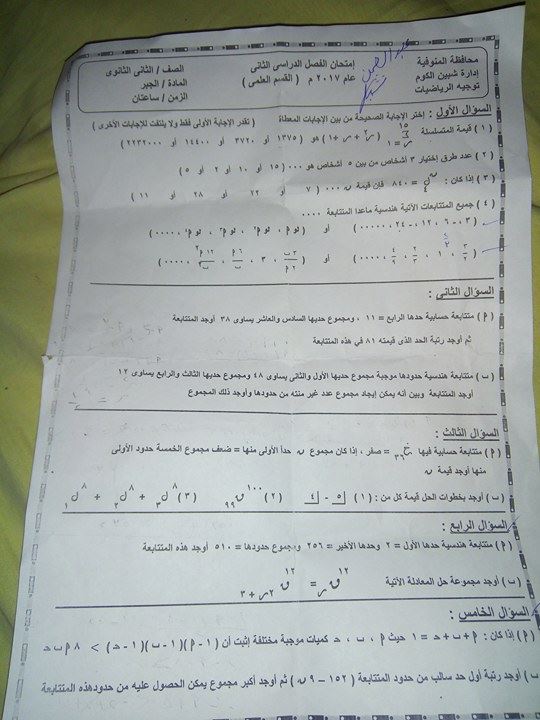 محافظة المنوفية
إدارة شبين الكوم
توجيه الرياضيات
إمتحان الفصل الدراسى الثانى
عام ٢٠١٧ م ( القسم العلمى )
الصف / الثانى الثانوى
المادة / الجبر
الزمن / ساعتان
السؤال الأول : إختر الإجابة الصحيحة من بين الإجابات المعطاة ( تقدر الإجابة الأولى فقط ولا يلتفت للإجابات الأخرى )
( ١ ) قيمة المتسلسلة ( ر٢ + ر + ١ ) هو ( ١٣٧٥ أو ٣٧٢٠ أو ١٤٤٠٠ أو ٢٢٣٢٠٠٠ )
( ٢ ) عدد طرق إختيار ٣ أشخاص من بين ٥ أشخاص هو ٠٠٠ ( ١٥ أو ١٠ أو ٢ أو ٥ )
( ٣ ) إذا كان : = ٨٤٠ فإن قيمة ن ٠٠٠ ( ٧ أو ٢٢ أو ٢٨ أو ١١ )
( ٤ ) جميع المتتابعات الآتية هندسية ماعدا المتتابعة ٠٠٠٠
( ٣ ، -٦ ، ١٢ ، -٢٤ ، ٠٠٠٠٠ ) أو
أو
السؤال الثانى :
( م ) متتابعة حسابية حدها الرابع = ١١ ، ومجموع حديها السادس والعاشر يساوى ٣٨ أوجد المتتابعة
ثم أوجد رتبة الحد الذى قيمته ٨١ فى هذه المتتابعة
( ب ) متتابعة هندسية حدودها موجبة مجموع حديها الأول والثانى يساوى ٤٨ ومجموع حديها الثالث والرابع يساوى ١٢
أوجد المتتابعة وبين أنه يمكن إيجاد مجموع عدد غير منته من حدودها وأوجد ذلك المجموع
السؤال الثالث :
( م ) متتابعة حسابية فيها = صفر ، إذا كان مجموع ن حداً الأولى منها = ضعف مجموع الخمسة حدود الأولى
منها أوجد قيمة ن
( ب ) أوجد بخطوات الحل قيمة كل من : ( ١ ) ٥ - ٤ ( ٢ ) ١٠٠ل٩٩ ( ٣ ) ٨ل٣ + ٨ل٢ + ٨ل١
السؤال الرابع :
( م ) متتابعة هندسية حدها الأول = ٢ وحدها الأخير = ٢٥٦ ومجموع حدودها = ٥١٠ أوجد هذه المتتابعة
( ب ) أوجد مجموعة حل المعادلة الآتية ١٢قر = ١٢ق٢ر + ٣
السؤال الخامس :
( م ) إذا كان : م + ب + حـ = ١ حيث م ، ب ، حـ كميات موجبة مختلفة إثبت أن ( ١ - م ) ( ١ - ب ) ( ١ - حـ ) > ٨ م ب حـ
( ب ) أوجد رتبة أول حد سالب من حدود المتتابعة ( ١٥٢ – ٩ ن ) ثم أوجد أكبر مجموع يمكن الحصول عليه من حدود هذه المتتابعة